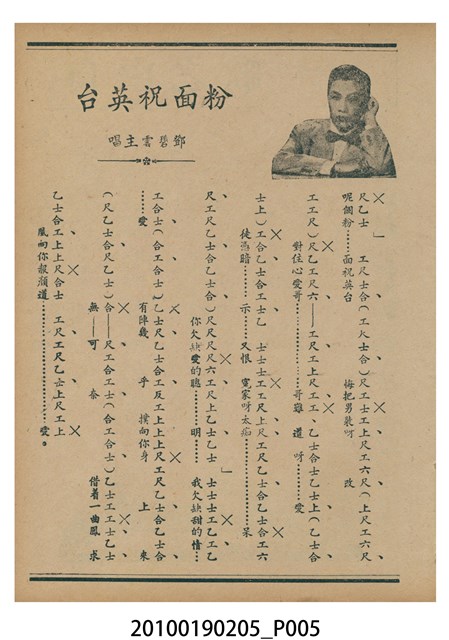 粉面祝英台
鄧碧雲主唱
尺乙士 工尺士合(工乂士合)尺工士工上尺工六尺(上尺工六尺
呢個粉……面祝英台 悔把男裝呀 改
工工尺)尺乙工尺六——工尺工上尺工、乙士合士乙士上(乙士合
對住心愛哥………哥難 道 呀……愛
士上)工合乙士合工士乙 士士工工尺上尺工尺乙士合乙士合工六
徒憑暗……示 又恨 冤家呀太痴………呆
尺工尺乙士合乙士合)尺尺尺六工尺上乙士乙士 士士士工乙工乙
你欠缺愛的聰……明…… 我欠缺甜的情…
工合士(合工合士)乙士尺乙士合工反工上上上尺工尺乙士合乙士合
……愛 有陣幾 乎 撲向你身 上 來
(尺乙士合尺乙士)合——尺工合工士(合工合士)乙士工工士乙士
無——可 奈 借着一曲鳳 求
乙士合工上上尺合士 工尺工尺乙士上尺工上
凰向你 顏道………………愛。
20100190205_P005